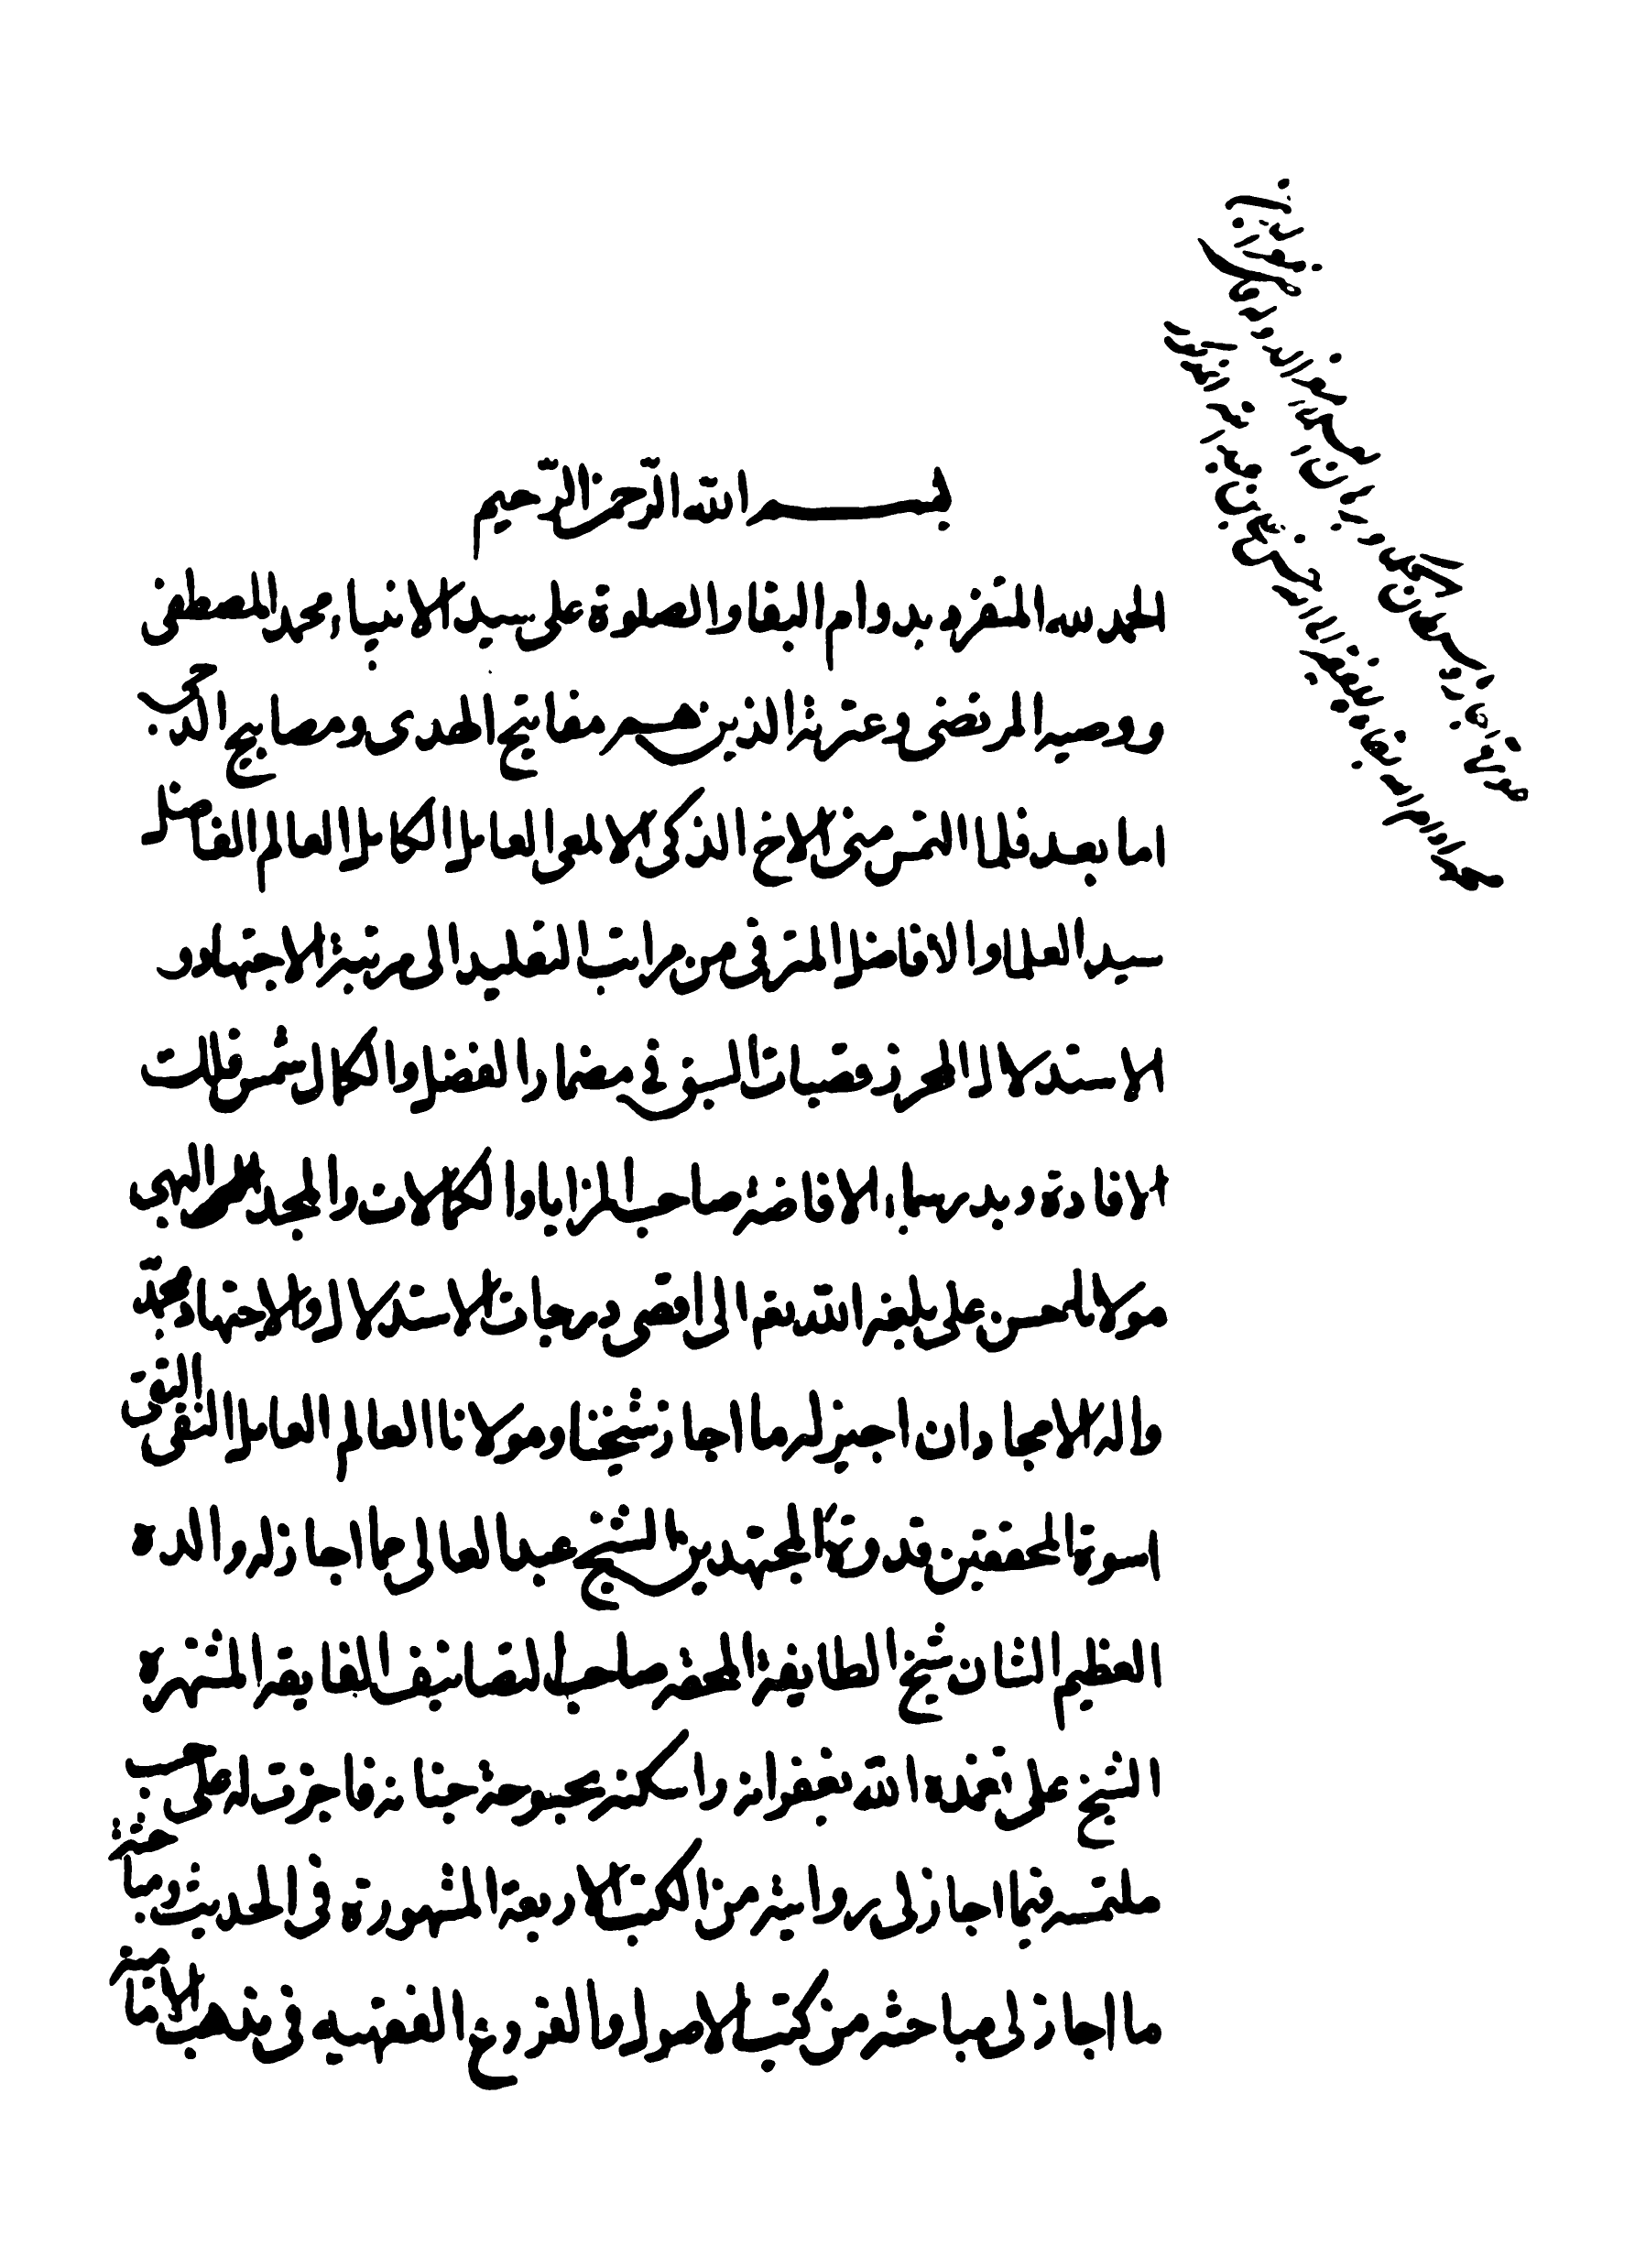 بسم الله الرحمن الرحيم
الحمد لله المتفرد بدوام البقا والصلوة على سيد الانبياء محمد المصطفى
ووصيه المرتضى وعترته الذين هم مفاتيح الهدى ومصابيح الدجى
اما بعد فلما التمس منى الاخ الذكى الالمعى العامل الكامل العالم الفاضل
سيد العلما والافاضل المترقى من مراتب التقليد الى مرتبة الاجتهاد و
الاستدلال المحرز قصبات السبق فى مضمار الفضل والكمال شمس فلك
الافادة وبدر سماء الافاضة صاحب المزايا والكمالات والمجد البهى
مولانا حسن على بلغه الله تعه الى اقصى درجات الاستدلال والاجتهاد بمحمد
واله الامجاد ان اجيز له ما اجاز شيخنا ومولانا العالم العامل النقى التقى
اسوة المحققين قدوة المجتهدين الشيخ عبد العالى مما اجاز له والده
العظيم الشان شيخ الطايفة المحقه صاحب التصانيف الفايقه المشتهره
الشيخ على تغمده الله بغفرانه واسكنه بحبوحة جنانه فاجزت له على حسب
ملتمسه فيما اجاز لى روايته من الكتب الاربعة المشهورة فى الحديث ومباحثة
ما اجاز لى مباحثه من كتب الاصول والفروع الفقهيه فى مذهب الامامية